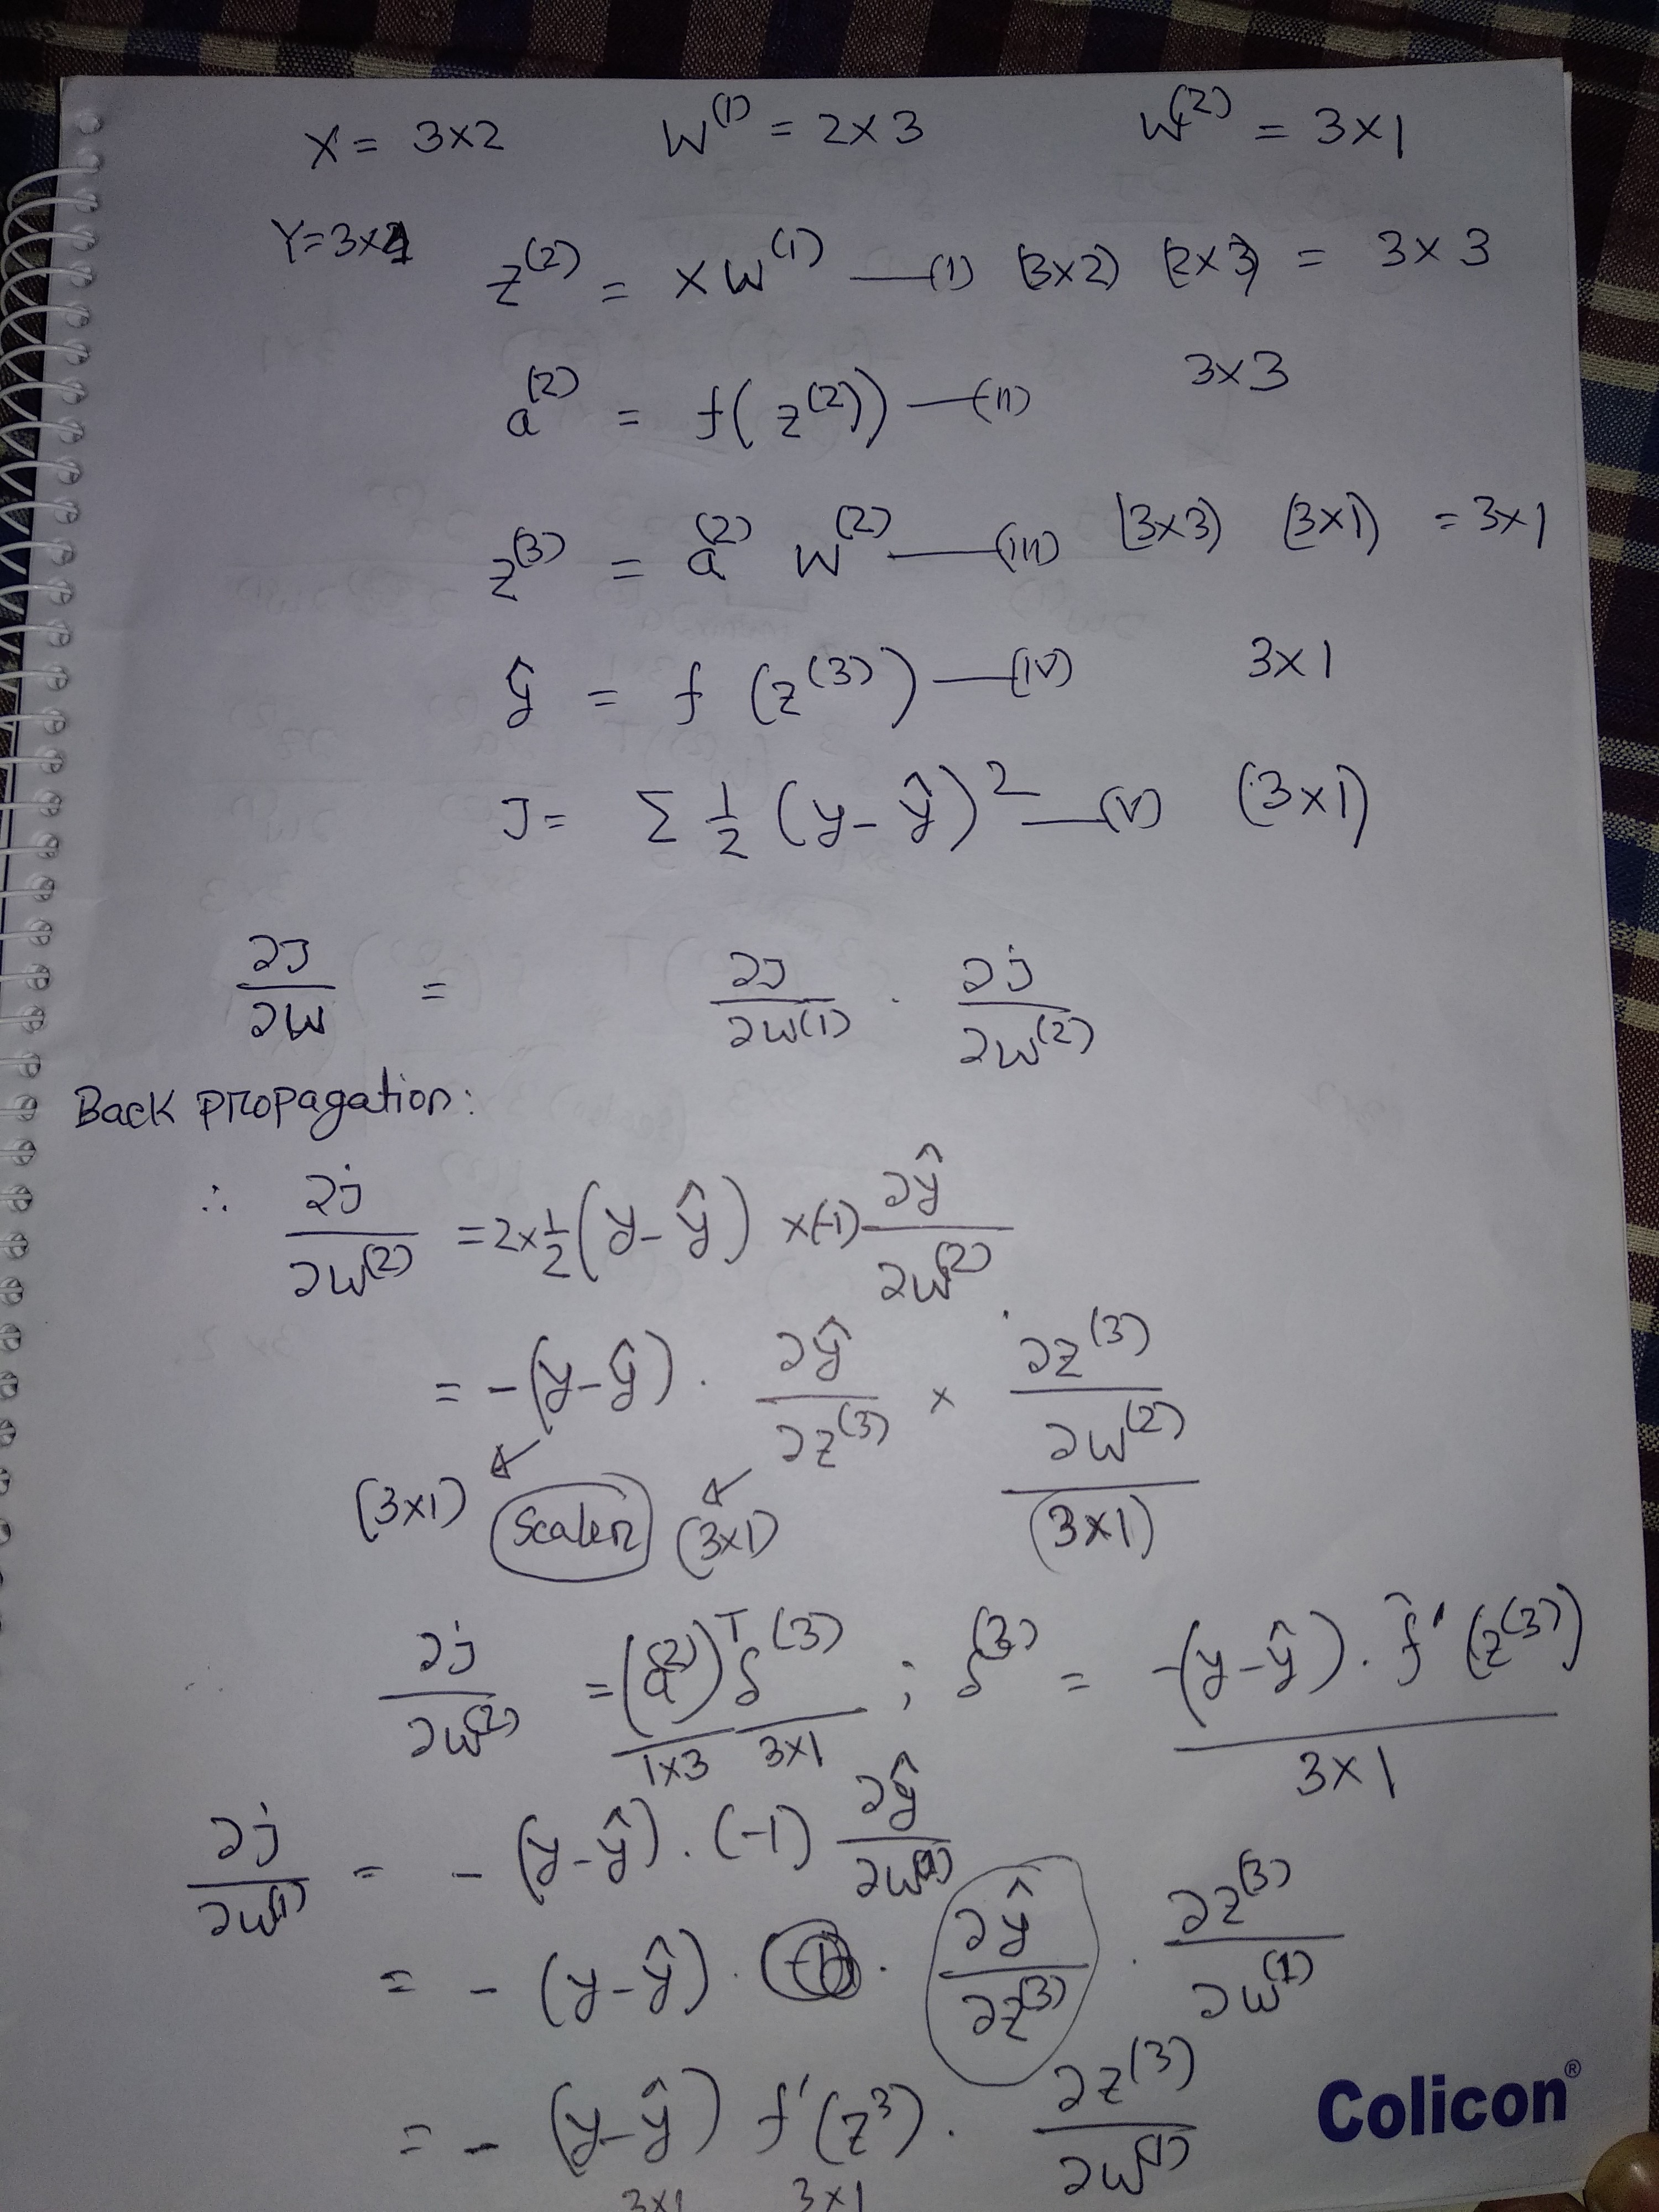 X = 3×2 W^(1) = 2×3 W^(2) = 3×1
Y=3×1 z^(2) = XW^(1) —(I) (3×2) (2×3) = 3×3
a^(2) = f(z^(2)) —(II) 3×3
z^(3) = a^(2) W^(2) —(III) (3×3) (3×1) = 3×1
ŷ = f (z^(3)) —(IV) 3×1
J = Σ ½ (y-ŷ)² —(V) (3×1)
∂J/∂W = ∂J/∂W^(1) . ∂J/∂W^(2)
Back propagation:
∴ ∂J/∂W^(2) = 2×½(y-ŷ) ×(-1) ∂ŷ/∂W^(2)
= -(y-ŷ) . ∂ŷ/∂z^(3) × ∂z^(3)/∂W^(2)
(3×1) Scaler (3×1) (3×1)
∂J/∂W^(2) = (a^(2))^T δ^(3) ; δ^(3) = -(y-ŷ) . f'(z^(3))
1×3 3×1 3×1
∂J/∂W^(1) = - (y-ŷ) . (-1) ∂ŷ/∂W^(1)
= - (y-ŷ) . . ∂ŷ/∂z^(3) . ∂z^(3)/∂W^(1)
= - (y-ŷ) f'(z^3) . ∂z^(3)/∂W^(1)
3×1 3×1
Colicon®